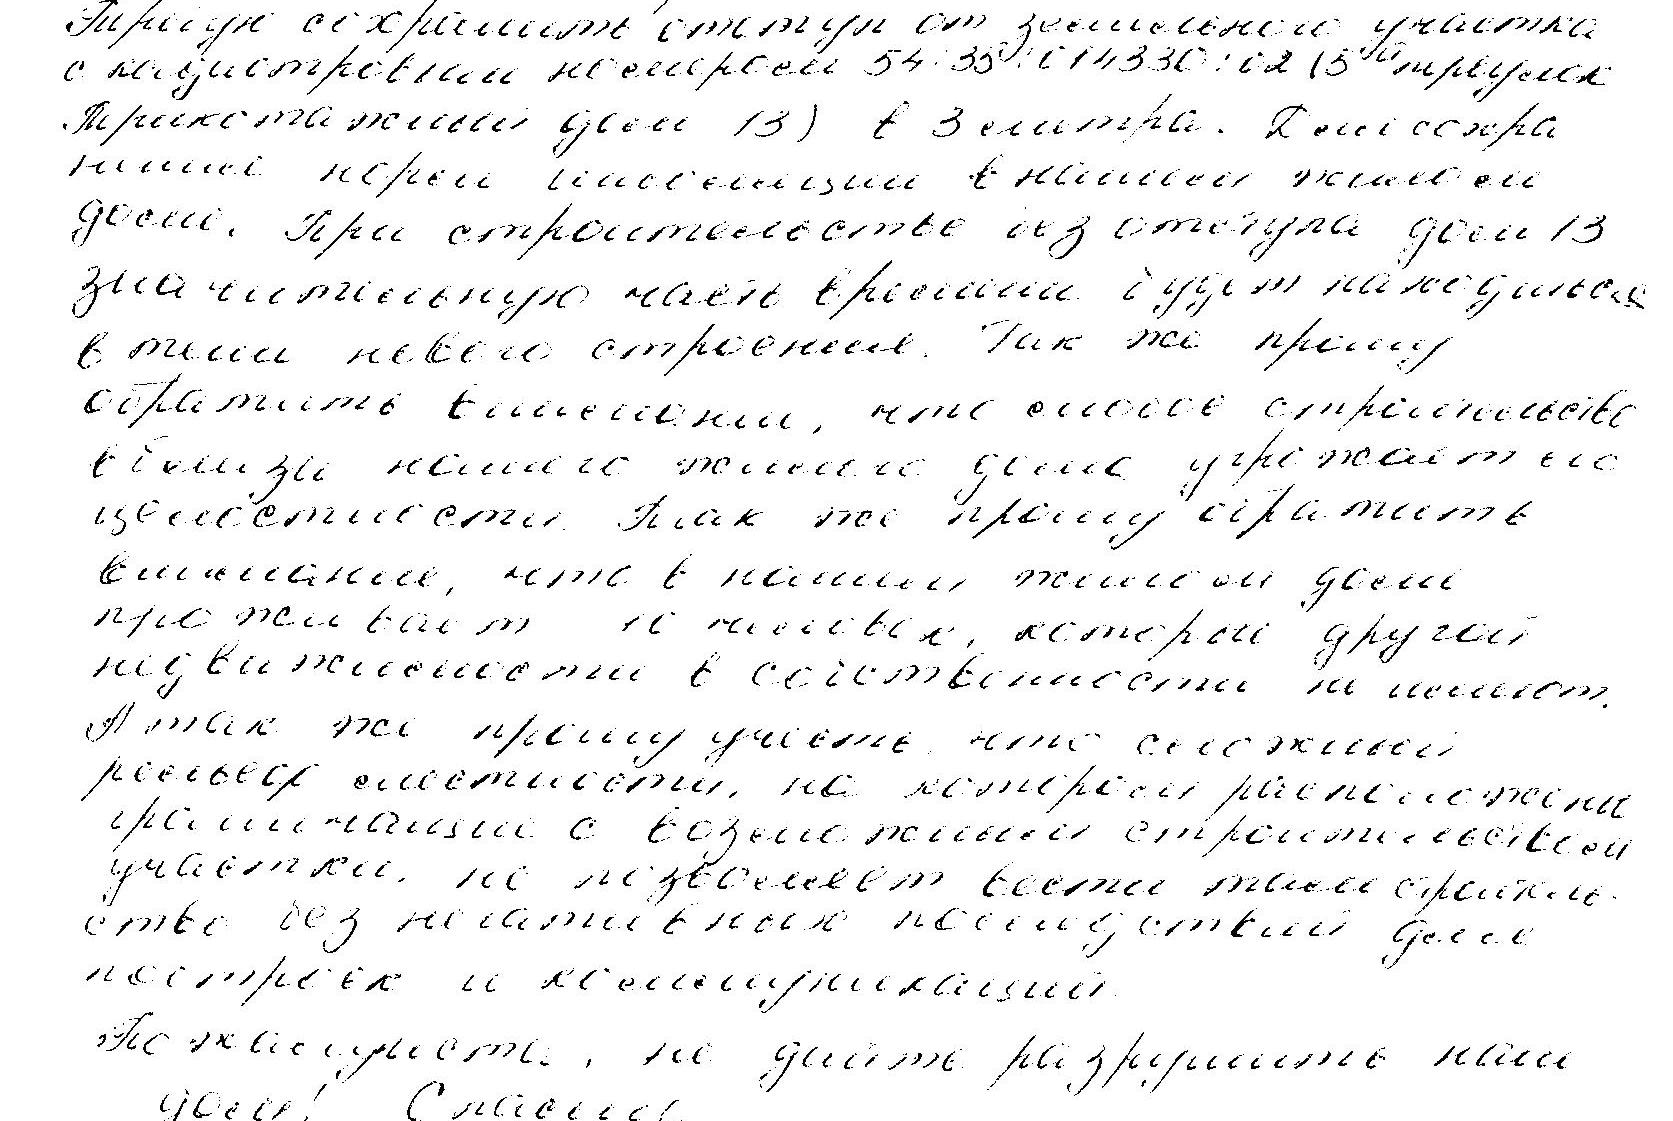 Прошу сохранить отступ от земельного участка
с кадастровым номером 54:35:014330:02 (5й переулок
Трикотажный дом 13) в 3 метра. Для сохра
нения норм инсоляции в нашем жилом
доме. При строительстве без отступа дом 13
значительную часть времени будет находиться
в тени нового строения. Так же прошу
обратить внимании, что любое строительство
вблизи нашего жилого дома угрожает его
целостности. Так же прошу обратить
внимание, что в нашем жилом доме
проживает 10 человек, которые другой
недвижимости в собственности не имеют.
А так же прошу учесть, что сложный
рельеф местности, на котором расположены
граничащие с возможным строительством
участки, не позволяет вести там строитель-
ство без негативных последствий для
построек и коммуникаций.
Пожалуйста, не дайте разрушить наш
дом! Спасибо!